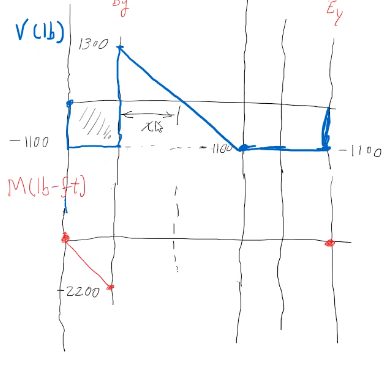 By
Ey
V(lb)
1300
x₁
-1100
1100
-1100
M(lb-ft)
-2200